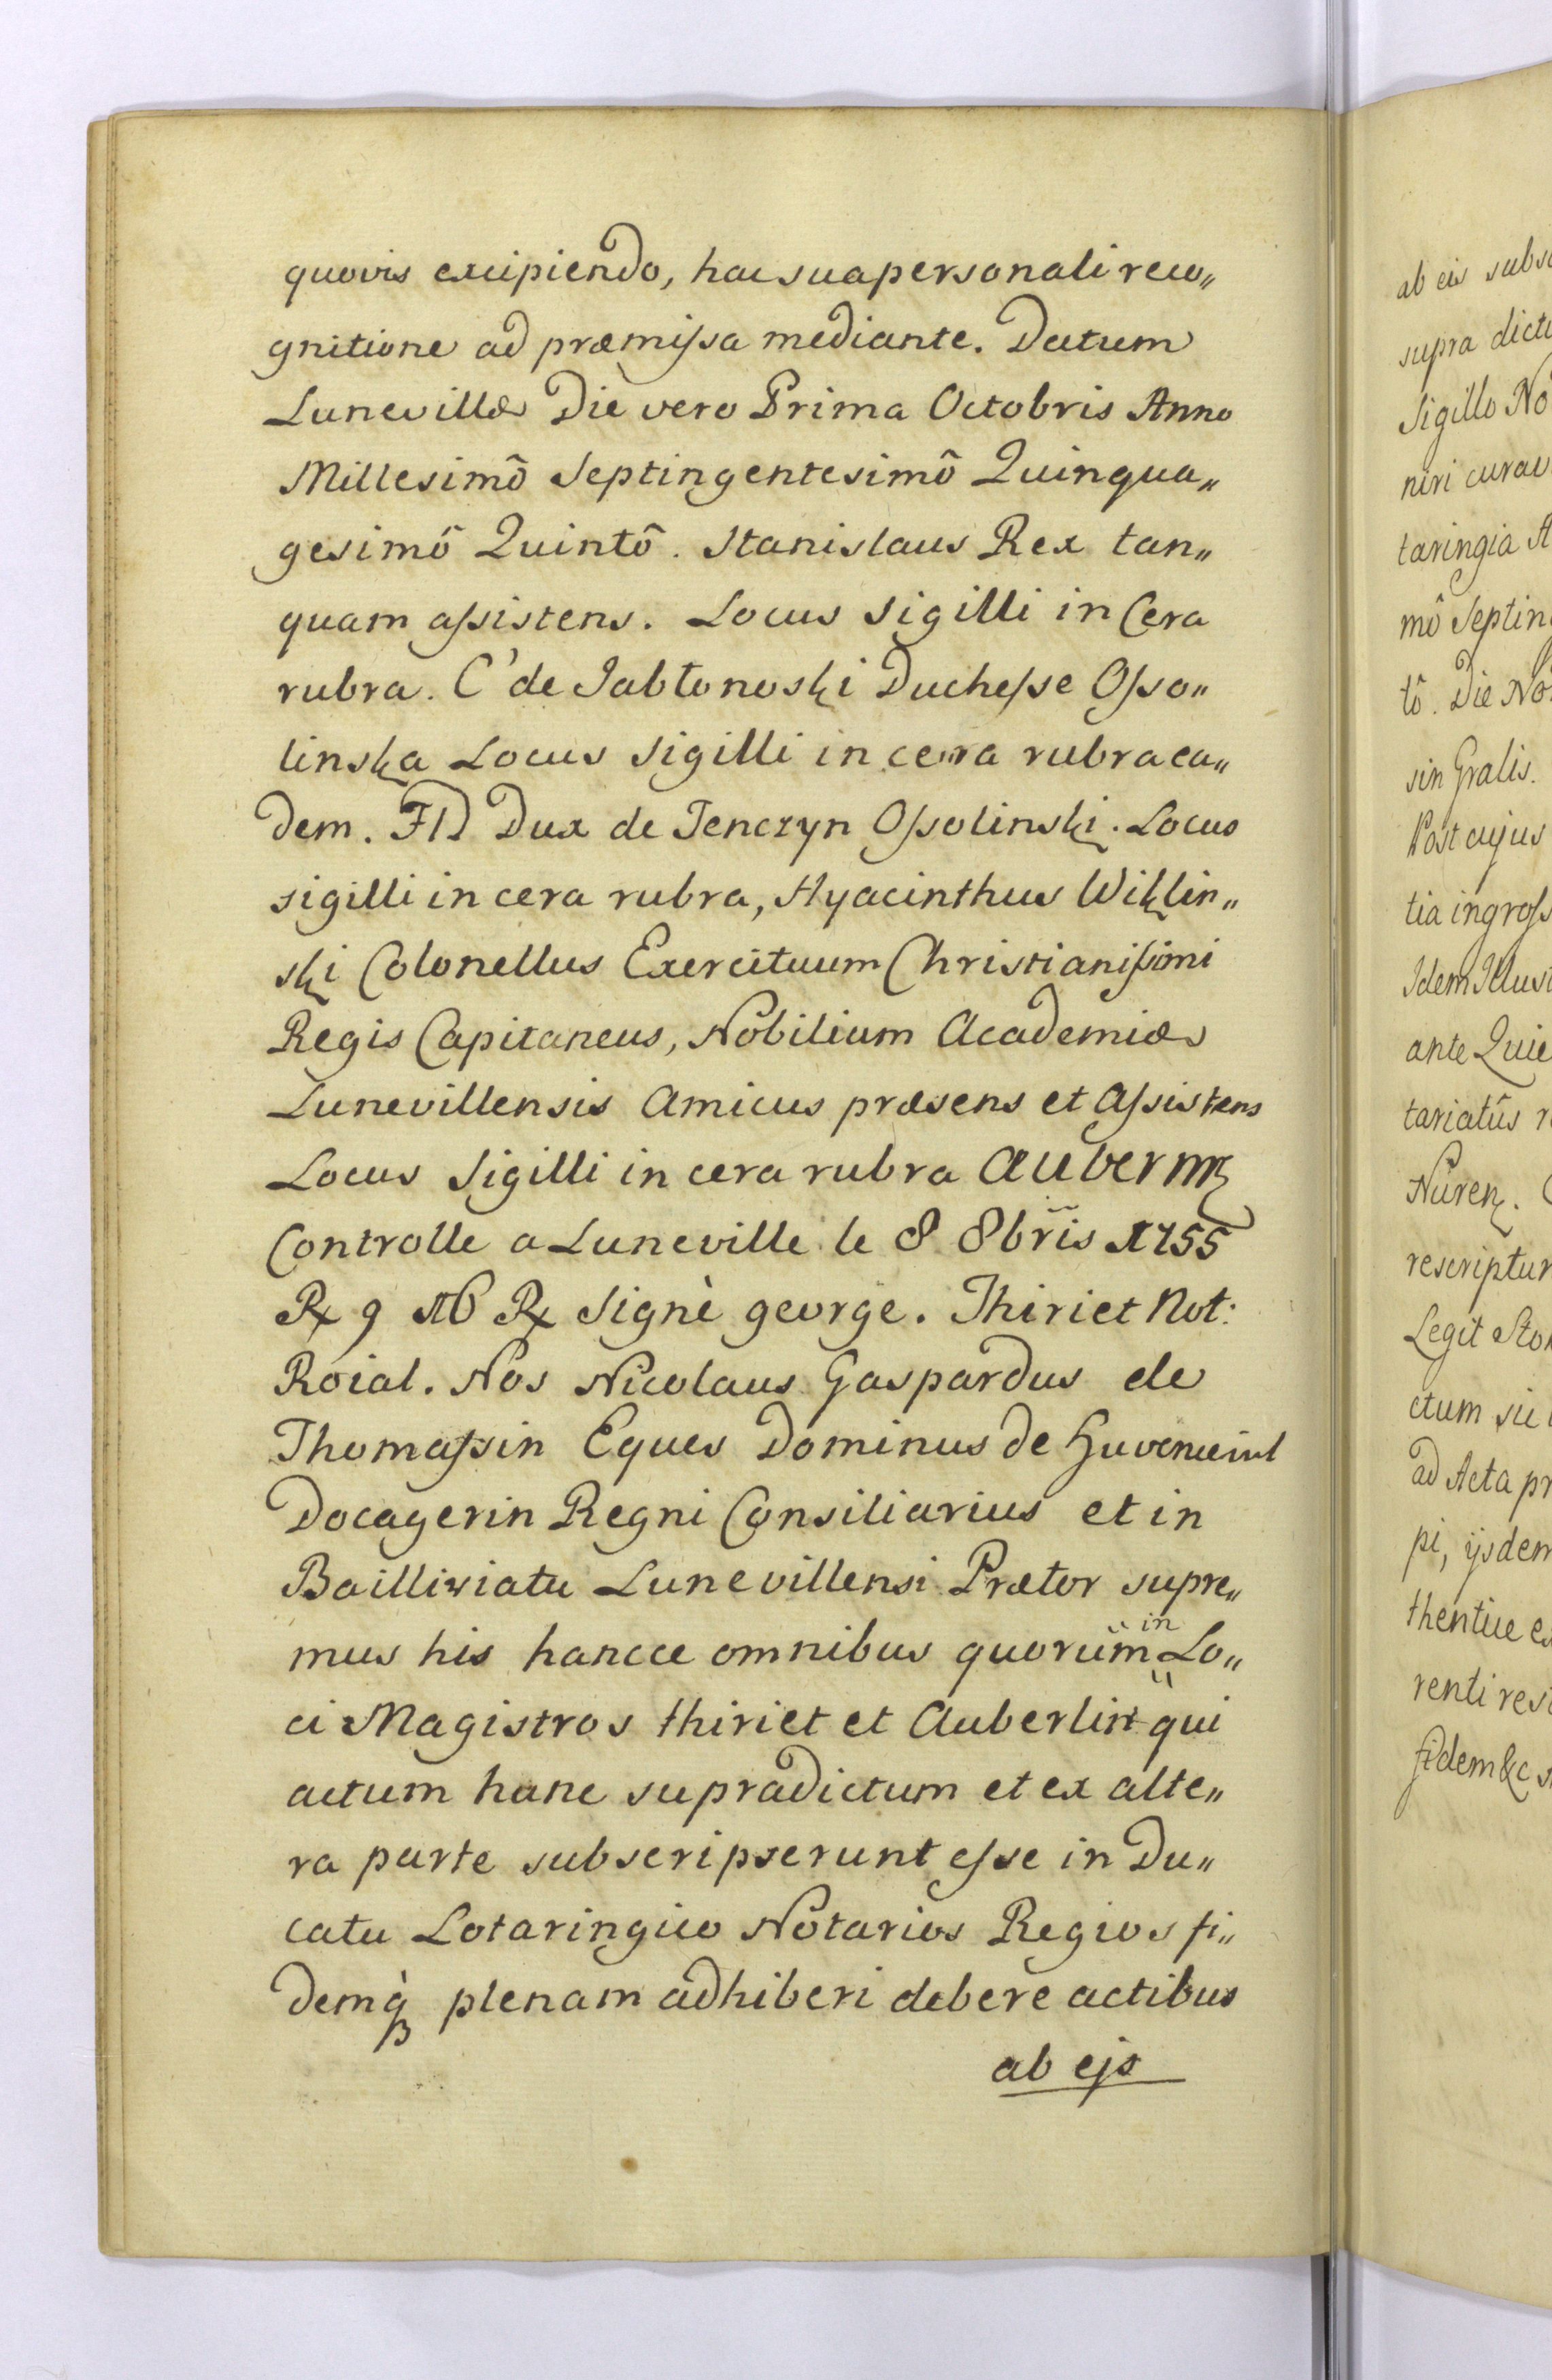 quovis excipiendo, hac sua personali reco„
gnitione ad præmiſsa mediante. Datum
Lunevillæ Die vero Prima Octobris Anno
Millesimô Septingentesimô Quinqua„
gesimô Quintô. Stanislaus Rex tan„
quam aſsistens. Locus Sigilli in Cera
rubra. C' de Jabłonoski Ducheſse Oſso„
linska Locus Sigilli in cera rubra ea„
dem. FD Dux de Tenczyn Oſsolinski. Locus
sigilli in cera rubra, Hyacinthus Wiklin„
ski Colonellus Exercituum Christianiſsimi
Regis Capitaneus, Nobilium Academiæ
Lunevillensis Amicus præsens et Aſsistens
Locus Sigilli in cera rubra
Controlle a Luneville le 8 8bris 1755
Signè george. Thiriet Not:
Roial. Nos Nicolaus Gaspardus de
Thomaſsin Eques Dominus de
Docagerin Regni Consiliarius et in
Bailliviatu Lunevillensi Prætor supre„
mus his hancce omnibus quorum in Lo„
ci Magistros thiriet et Auberlin qui
actum hanc supradictum et ex alte„
ra parte subscripserunt eſse in Du„
catu Lotaringico Notarios Regios fi„
demq́ꝫ plenam adhiberi debere actibus
ab ejs
ab eis
supra
Sigillo
taringia
mô
tô. Die
sin Gralis.
Post cujus
tia
Idem
ante
tariatûs
Legit
ctum
ad Acta
pi, ijsdem
renti
fidem &c